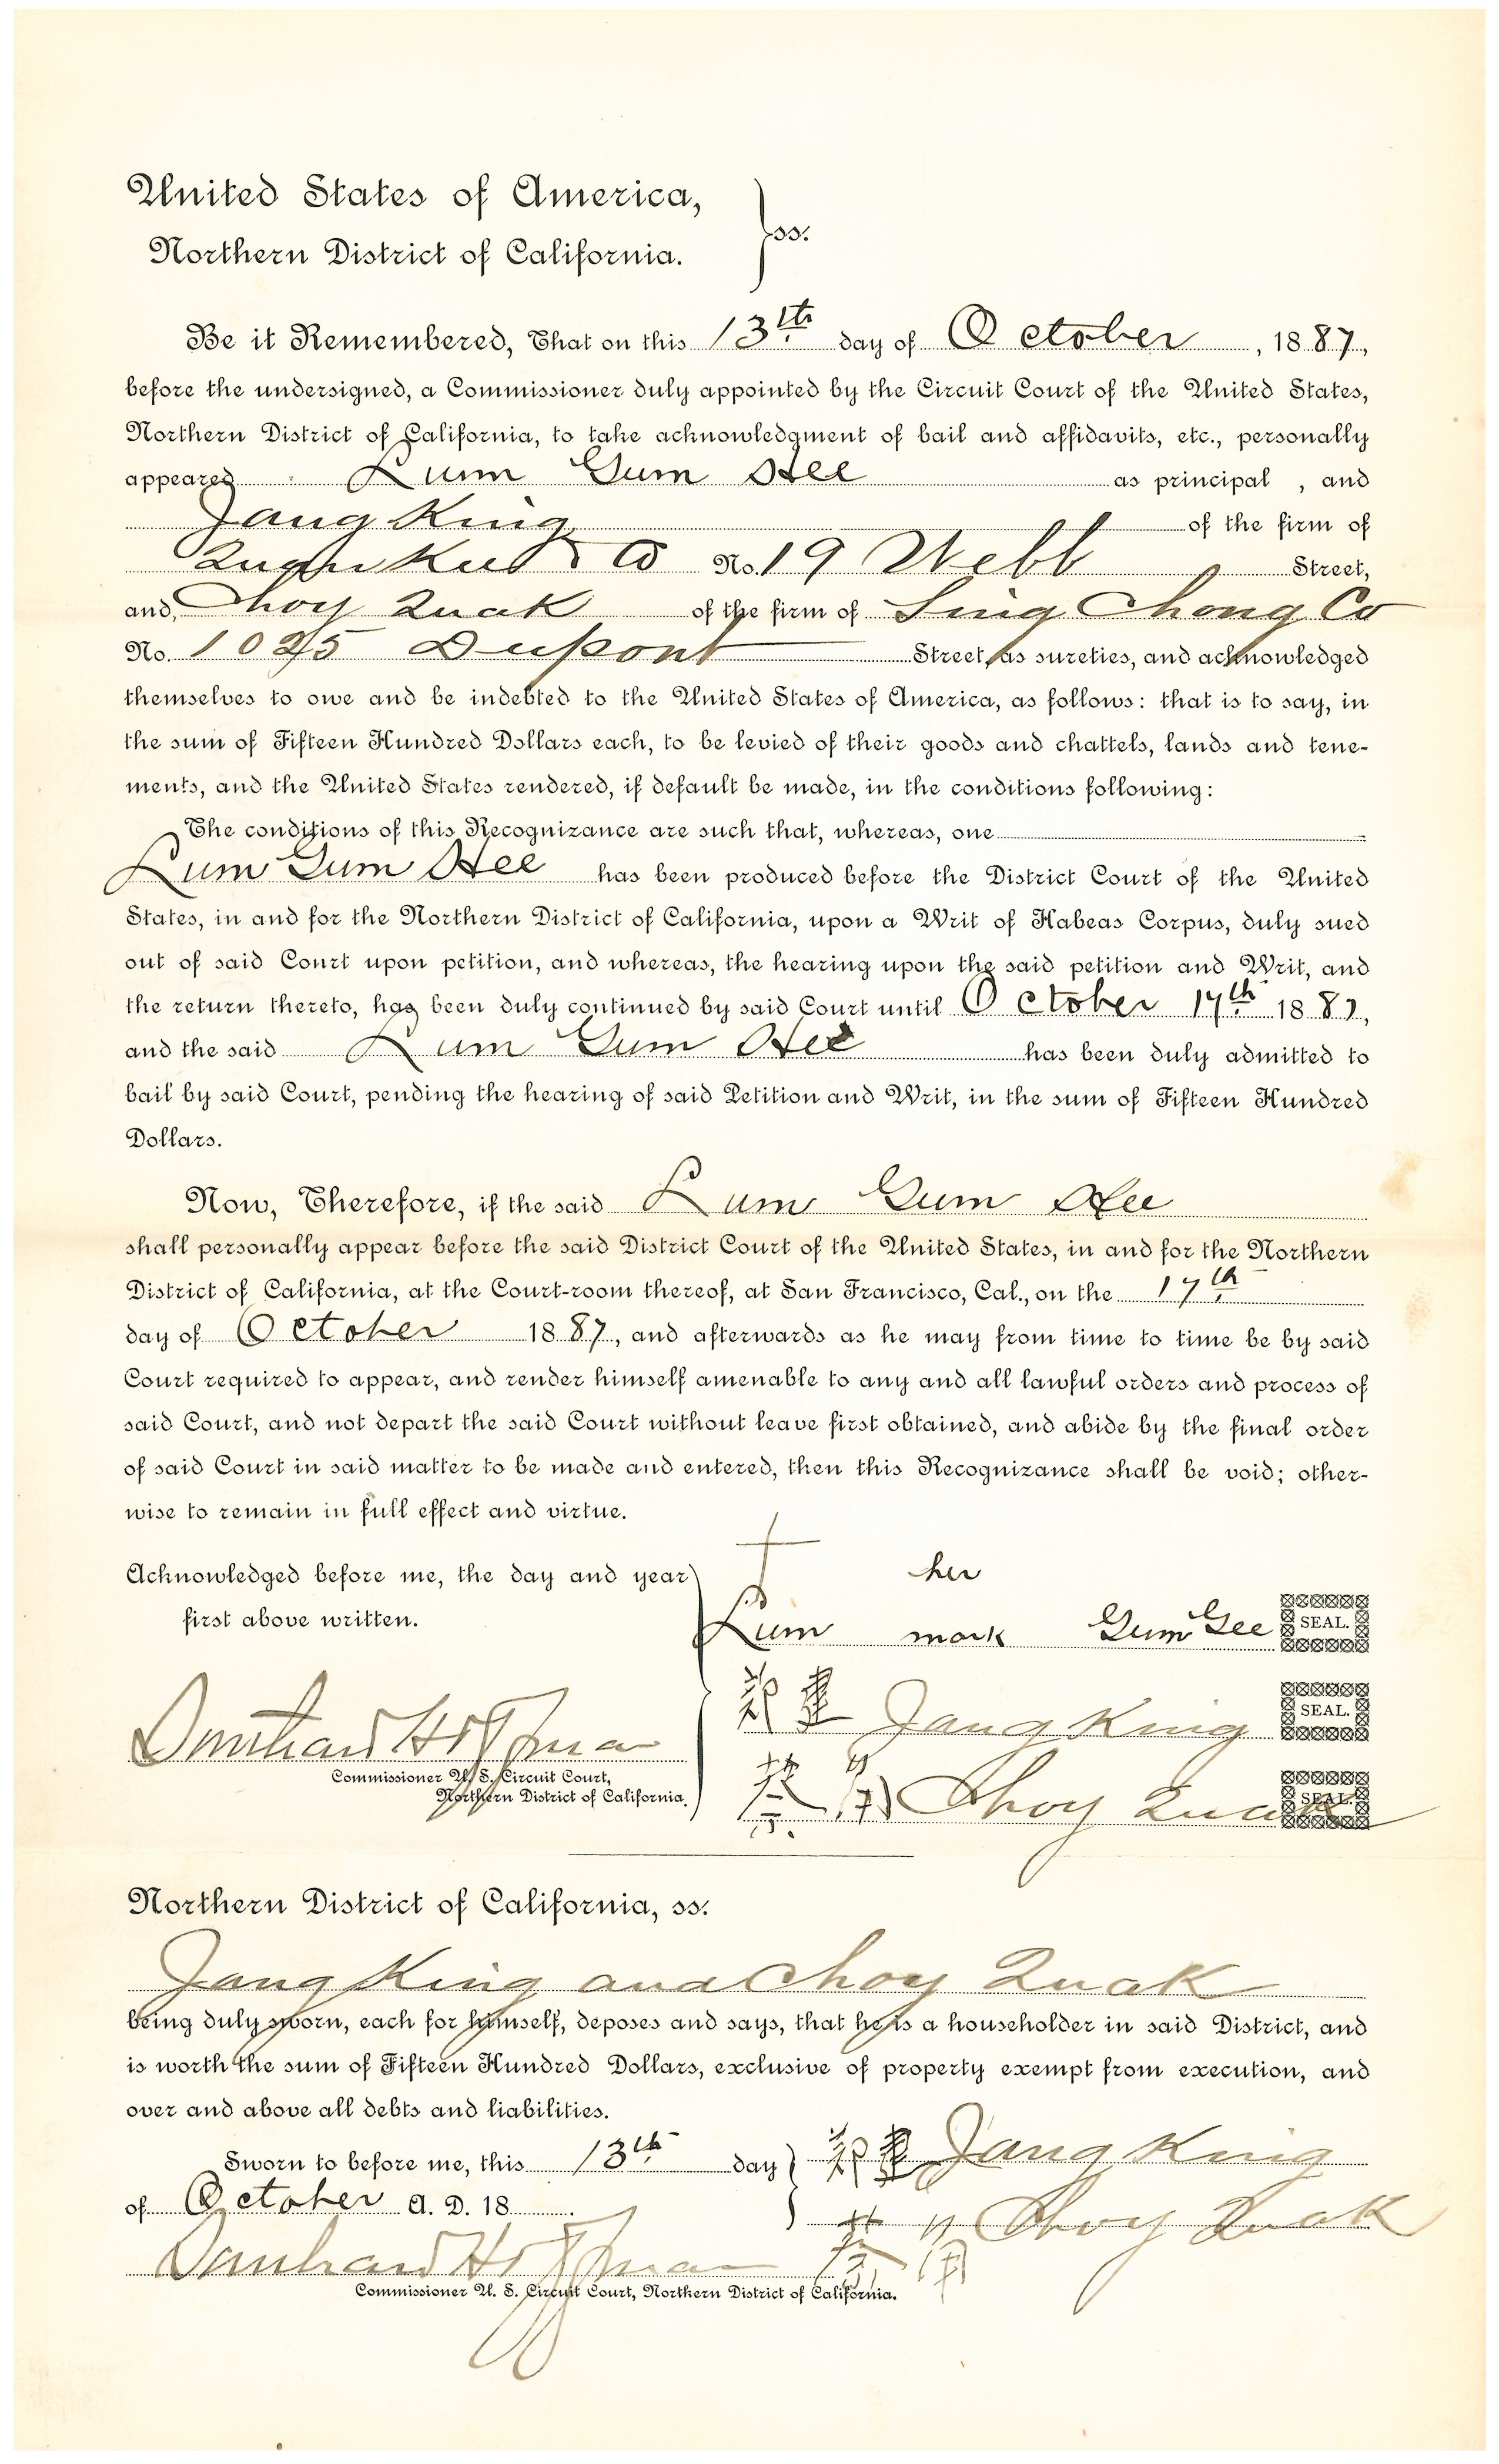 United States of America,
Northern District of California. } ss.
Be it Remembered, That on this 13th day of October, 1887,
before the undersigned, a Commissioner duly appointed by the Circuit Court of the United States,
Northern District of California, to take acknowledgment of bail and affidavits, etc., personally
appeared Lum Gum Hee as principal , and
Jang King of the firm of
& Co No. 19 Webb Street,
and, Choy Quak of the firm of Sing Chong Co
No. 1025 Dupont Street, as sureties, and acknowledged
themselves to owe and be indebted to the United States of America, as follows: that is to say, in
the sum of Fifteen Hundred Dollars each, to be levied of their goods and chattels, lands and tene-
ments, and the United States rendered, if default be made, in the conditions following:
The conditions of this Recognizance are such that, whereas, one
Lum Gum Hee has been produced before the District Court of the United
States, in and for the Northern District of California, upon a Writ of Habeas Corpus, duly sued
out of said Court upon petition, and whereas, the hearing upon the said petition and Writ, and
the return thereto, has been duly continued by said Court until October 17th 1887,
and the said Lum Gum Hee has been duly admitted to
bail by said Court, pending the hearing of said Petition and Writ, in the sum of Fifteen Hundred
Dollars.
Now, Therefore, if the said Lum Gum Hee
shall personally appear before the said District Court of the United States, in and for the Northern
District of California, at the Court-room thereof, at San Francisco, Cal., on the 17th
day of October 1887, and afterwards as he may from time to time be by said
Court required to appear, and render himself amenable to any and all lawful orders and process of
said Court, and not depart the said Court without leave first obtained, and abide by the final order
of said Court in said matter to be made and entered, then this Recognizance shall be void; other-
wise to remain in full effect and virtue.
Acknowledged before me, the day and year
first above written.
her
Lum mark Gum Gee SEAL.
Jang King SEAL.
Choy Quak SEAL.
Hoffman
Commissioner U. S. Circuit Court,
Northern District of California.
Northern District of California, ss:
Jang King and Choy Quak
being duly sworn, each for himself, deposes and says, that he is a householder in said District, and
is worth the sum of Fifteen Hundred Dollars, exclusive of property exempt from execution, and
over and above all debts and liabilities.
Sworn to before me, this 13th day
of October A. D. 18
Jang King
Choy Quak
Hoffman
Commissioner U. S. Circuit Court, Northern District of California.